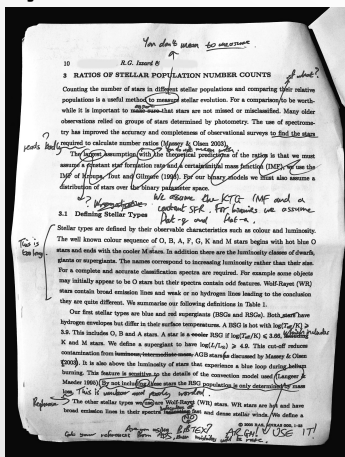 You don't mean to measure
10 R.G. Izzard &
3 RATIOS OF STELLAR POPULATION NUMBER COUNTS
of what?
Counting the number of stars in different stellar populations and comparing their relative
populations is a useful method to measure stellar evolution. For a comparison to be worth-
while it is important to make sure that stars are not missed or misclassified. Many older
observations relied on groups of stars determined by photometry. The use of spectrome-
try has improved the accuracy and completeness of observational surveys to find the stars
required to calculate number ratios (Massey & Olsen 2003).
reads badly
The largest assumption with the theoretical predictions of the ratios is that we must
assume a constant star formation rate and a certain initial mass function (IMF), we use the
IMF of Kroupa, Tout and Gilmore (1993). For our binary models we must also assume a
distribution of stars over the binary parameter space.
We assume the KTG IMF and a
constant SFR. For binaries we assume
3.1 Defining Stellar Types
Stellar types are defined by their observable characteristics such as colour and luminosity.
The well known colour sequence of O, B, A, F, G, K and M stars begins with hot blue O
stars and ends with the cooler M stars. In addition there are the luminosity classes of dwarfs,
giants or supergiants. The names correspond to increasing luminosity rather than their size.
This is
too long.
For a complete and accurate classification spectra are required. For example some objects
may initially appear to be O stars but their spectra contain odd features. Wolf-Rayet (WR)
stars contain broad emission lines and weak or no hydrogen lines leading to the conclusion
they are quite different. We summarise our following definitions in Table 1.
Our first stellar types are blue and red supergiants (BSGs and RSGs). Both have
hydrogen envelopes but differ in their surface temperatures. A BSG is hot with log(Teff/K) ≥
3.9. This includes O, B and A stars. A star is a RSG if log(Teff/K) ≤ 3.66,
which includes
K and M stars. We define a supergiant to have log(L/L⊙) ≥ 4.9. This cut-off reduces
contamination from AGB stars as discussed by Massey & Olsen
(2003). It is also above the luminosity of stars that experience a blue loop during helium
burning. This feature is sensitive to the details of the convection model used (Langer &
Maeder 1995). By not including these stars the RSG population is only determined by mass
loss
This is unclear and poorly worded.
Rephrase
The other stellar types we use are Wolf-Rayet (WR) stars. WR stars are hot and have
broad emission lines in their spectra fast and dense stellar winds. We define a
© 2005 RAS, MNRAS 000, 1–23
Are you using BIBTEX? ARGH! USE IT!
Get your references from ADS,